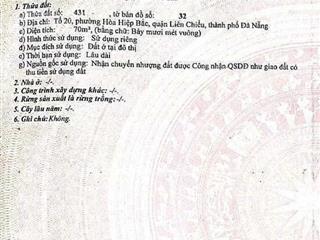 1. Thửa đất:
a) Thửa đất số: 431 , tờ bản đồ số: 32
b) Địa chỉ: Tổ 20, phường Hòa Hiệp Bắc, quận Liên Chiểu, thành phố Đà Nẵng
c) Diện tích: 70m², (bằng chữ: Bảy mươi mét vuông)
d) Hình thức sử dụng: Sử dụng riêng
đ) Mục đích sử dụng: Đất ở tại đô thị
e) Thời hạn sử dụng: Lâu dài
g) Nguồn gốc sử dụng: Nhận chuyển nhượng đất được Công nhận QSDĐ như giao đất có
thu tiền sử dụng đất
2. Nhà ở: -/-.
3. Công trình xây dựng khác: -/-.
4. Rừng sản xuất là rừng trồng: -/-.
5. Cây lâu năm: -/-.
6. Ghi chú: Không.